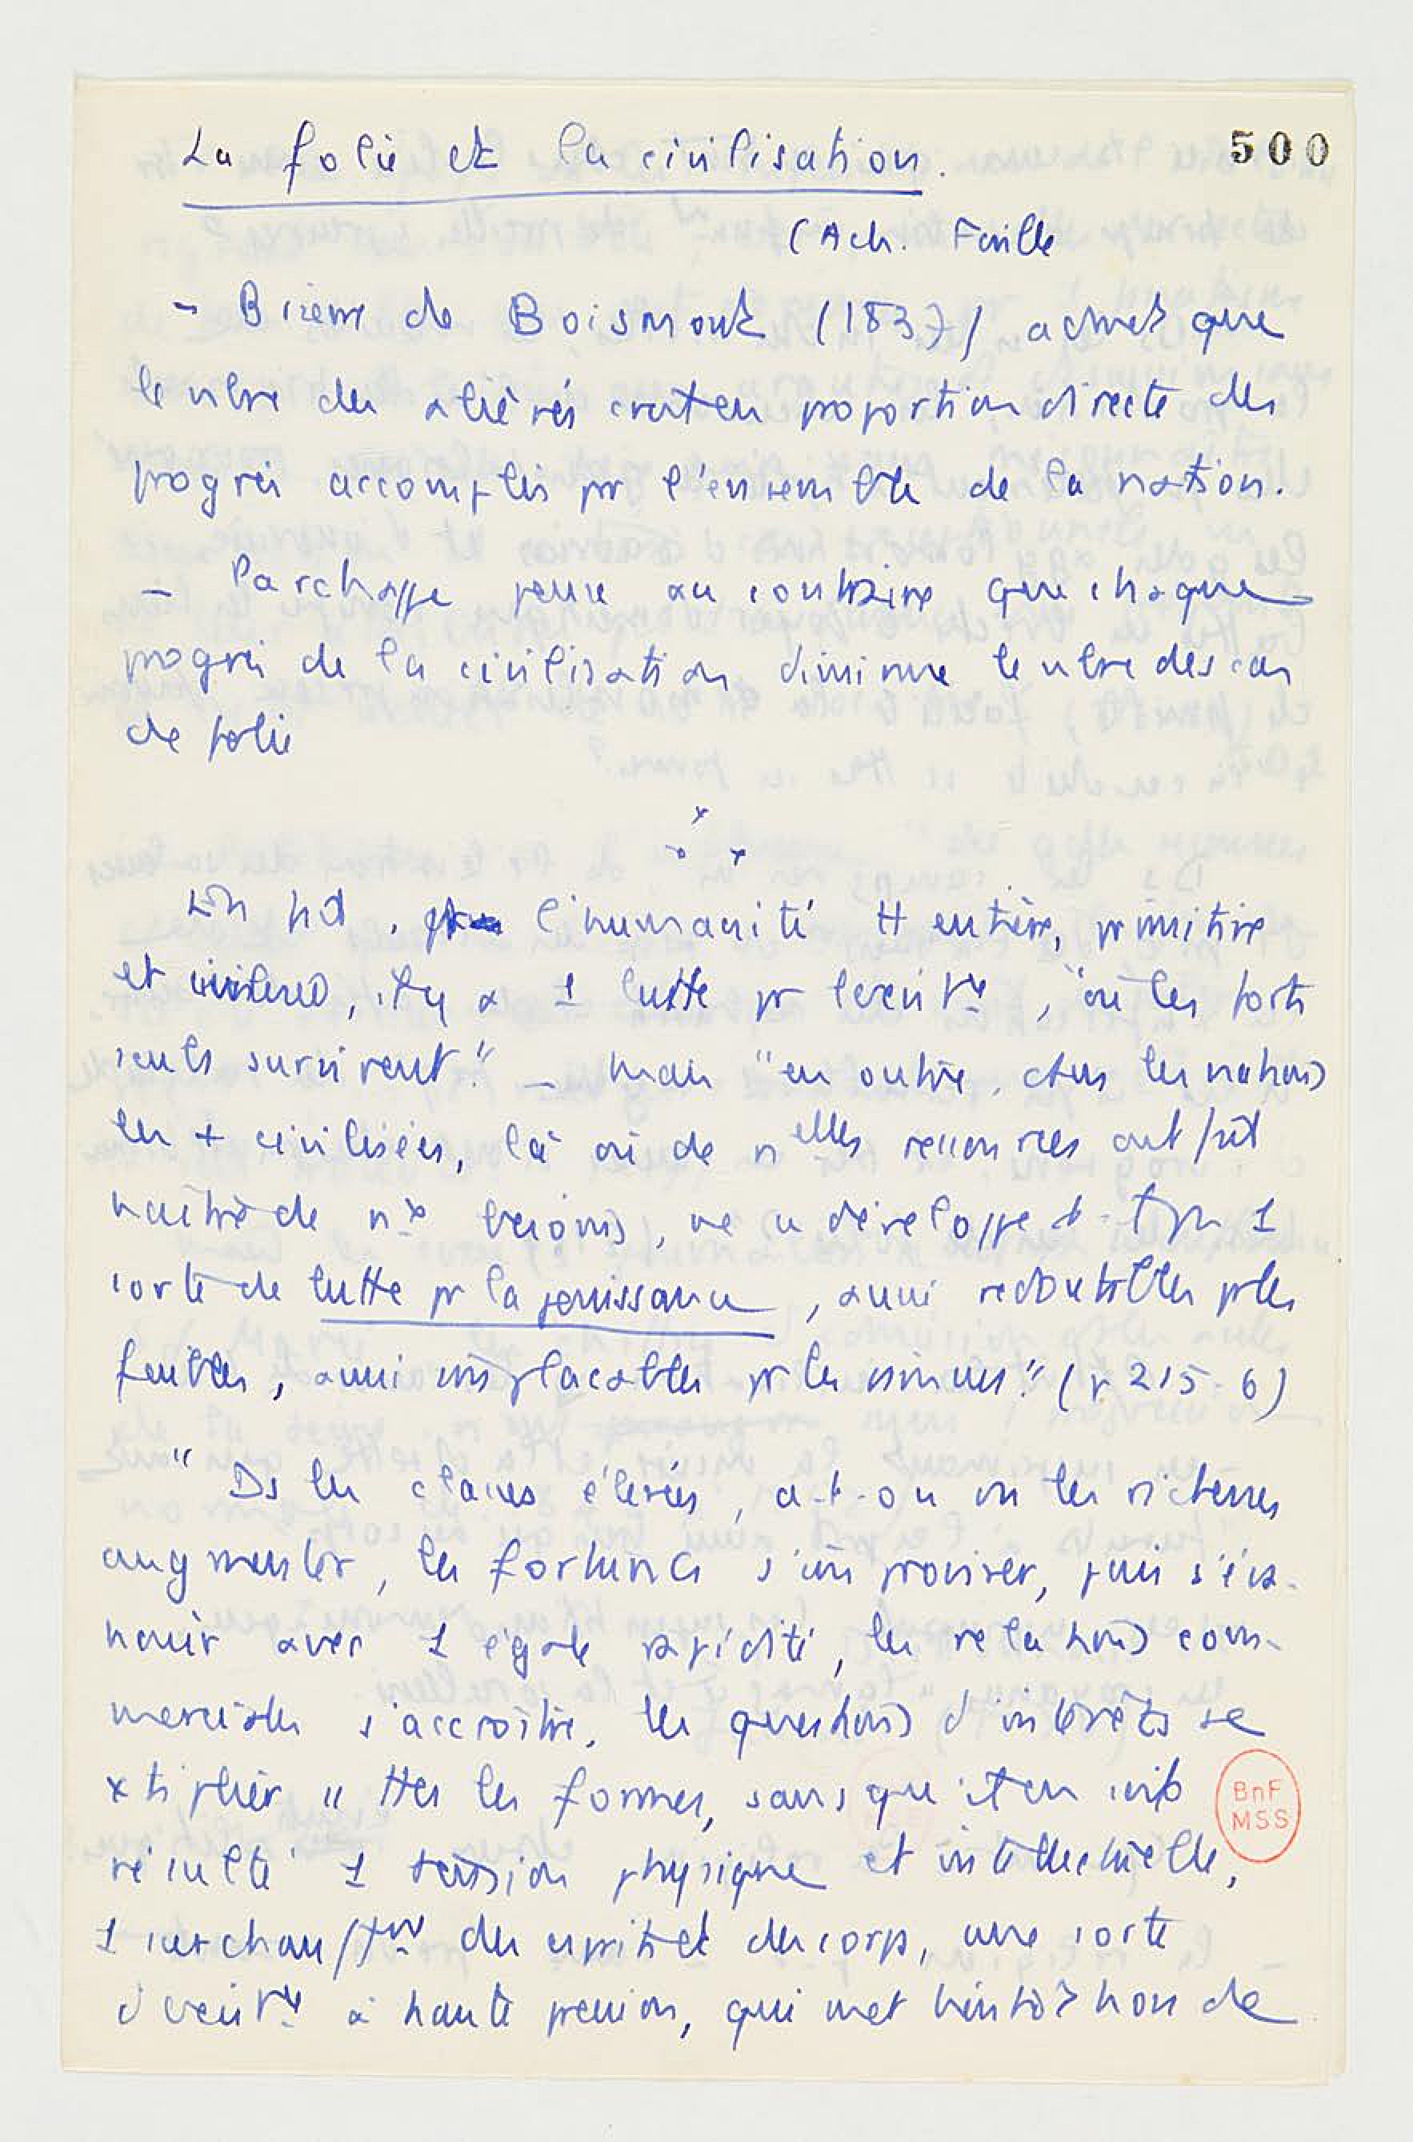 La folie et la civilisation.
500
(Ach. Foville
- Brierre de Boismont (1837) admet que
le nbre des aliénés croît en proportion directe des
progrès accomplis pr l'ensemble de la nation.
- Parchappe pense au contraire que chaque
progrès de la civilisation diminue le nbre des cas
de folie
x
x x
l'humanité tt entière, primitive
et civilisée, il y a 1 lutte pr l'exist^ce, "où les forts
seuls survivent". - mais "en outre, chez les nations
les + civilisées, là où de n^elles ressources ont fait
naître de n^x besoins, ne se développe-t-il pas 1
sorte de lutte pr la jouissance, aussi redoutables pr les
faibles, aussi implacables pr les vaincus." (p 215-6)
"Ds les classes élevées, a-t-on vu les richesses
augmenter, les fortunes s'improviser, puis s'éva-
nouir avec 1 égale rapidité, les relations com-
merciales s'accroître, les questions d'intérêts se
xtiplier ss ttes les formes, sans qu'il en soit
résulté 1 tension physique et intellectuelle,
1 surchauff^mt des esprits et des corps, une sorte
d'exist^ce à haute pression, qui met bientôt hors de
BnF
MSS